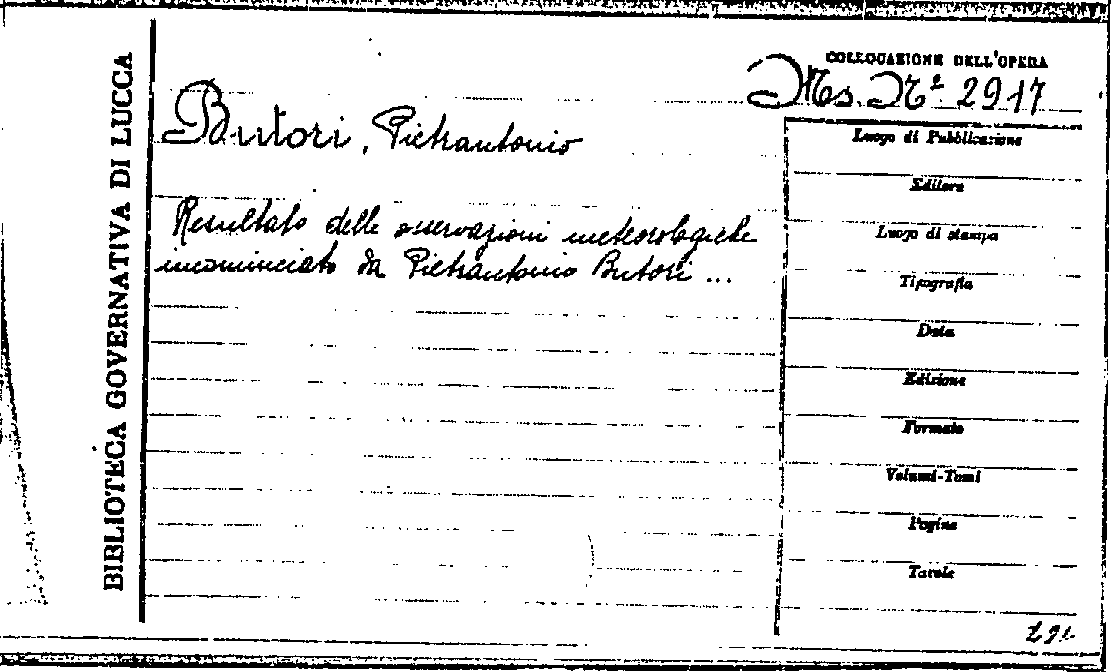 BIBLIOTECA GOVERNATIVA DI LUCCA
COLLOCAZIONE DELL'OPERA
Ms. N.º 2917
Butori, Pietrantonio
Resultato delle osservazioni meteorologiche
incominciato da Pietrantonio Butori ...
Luogo di Pubblicazione
Editore
Luogo di stampa
Tipografia
Data
Edizione
Formato
Volumi-Tomi
Pagine
Tavole